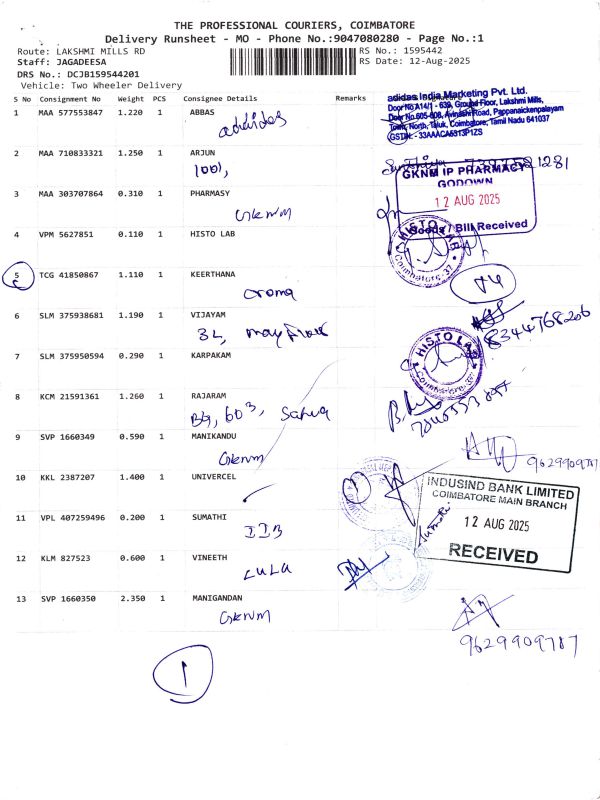 THE PROFESSIONAL COURIERS, COIMBATORE
Delivery Runsheet - MO - Phone No.:9047080280 - Page No.:1
Route: LAKSHMI MILLS RD RS No.: 1595442
Staff: JAGADEESA RS Date: 12-Aug-2025
DRS No.: DCJB159544201
Vehicle: Two Wheeler Delivery
S No Consignment No Weight PCS Consignee Details Remarks
adidas India Marketing Pvt. Ltd.
Door No A14/1 - 639, Ground Floor, Lakshmi Mills,
Door No.605-608, Avinashi Road, Pappanaickenpalayam
Town, North, Taluk, Coimbatore, Tamil Nadu 641037
GSTIN:- 33AAACA5513P1ZS
1 MAA 577553847 1.220 1 ABBAS
adidas
2 MAA 710833321 1.250 1 ARJUN
1001,
GKNM IP PHARMACY
GODOWN
12 AUG 2025
Goods / Bill Received
3 MAA 303707864 0.310 1 PHARMASY
GKNM
4 VPM 5627851 0.110 1 HISTO LAB
HISTO LAB
Coimbatore-37
5 TCG 41850867 1.110 1 KEERTHANA
croma
6 SLM 375938681 1.190 1 VIJAYAM
3L, mayflower
8344768206
7 SLM 375950594 0.290 1 KARPAKAM
HISTO LAB
Coimbatore-37
8 KCM 21591361 1.260 1 RAJARAM
603,
9 SVP 1660349 0.590 1 MANIKANDU
GKNM
9629909787
10 KKL 2387207 1.400 1 UNIVERCEL
INDUSIND BANK LIMITED
COIMBATORE MAIN BRANCH
12 AUG 2025
RECEIVED
11 VPL 407259496 0.200 1 SUMATHI
IIB
12 KLM 827523 0.600 1 VINEETH
LULU
13 SVP 1660350 2.350 1 MANIGANDAN
GKNM
9629909787
1